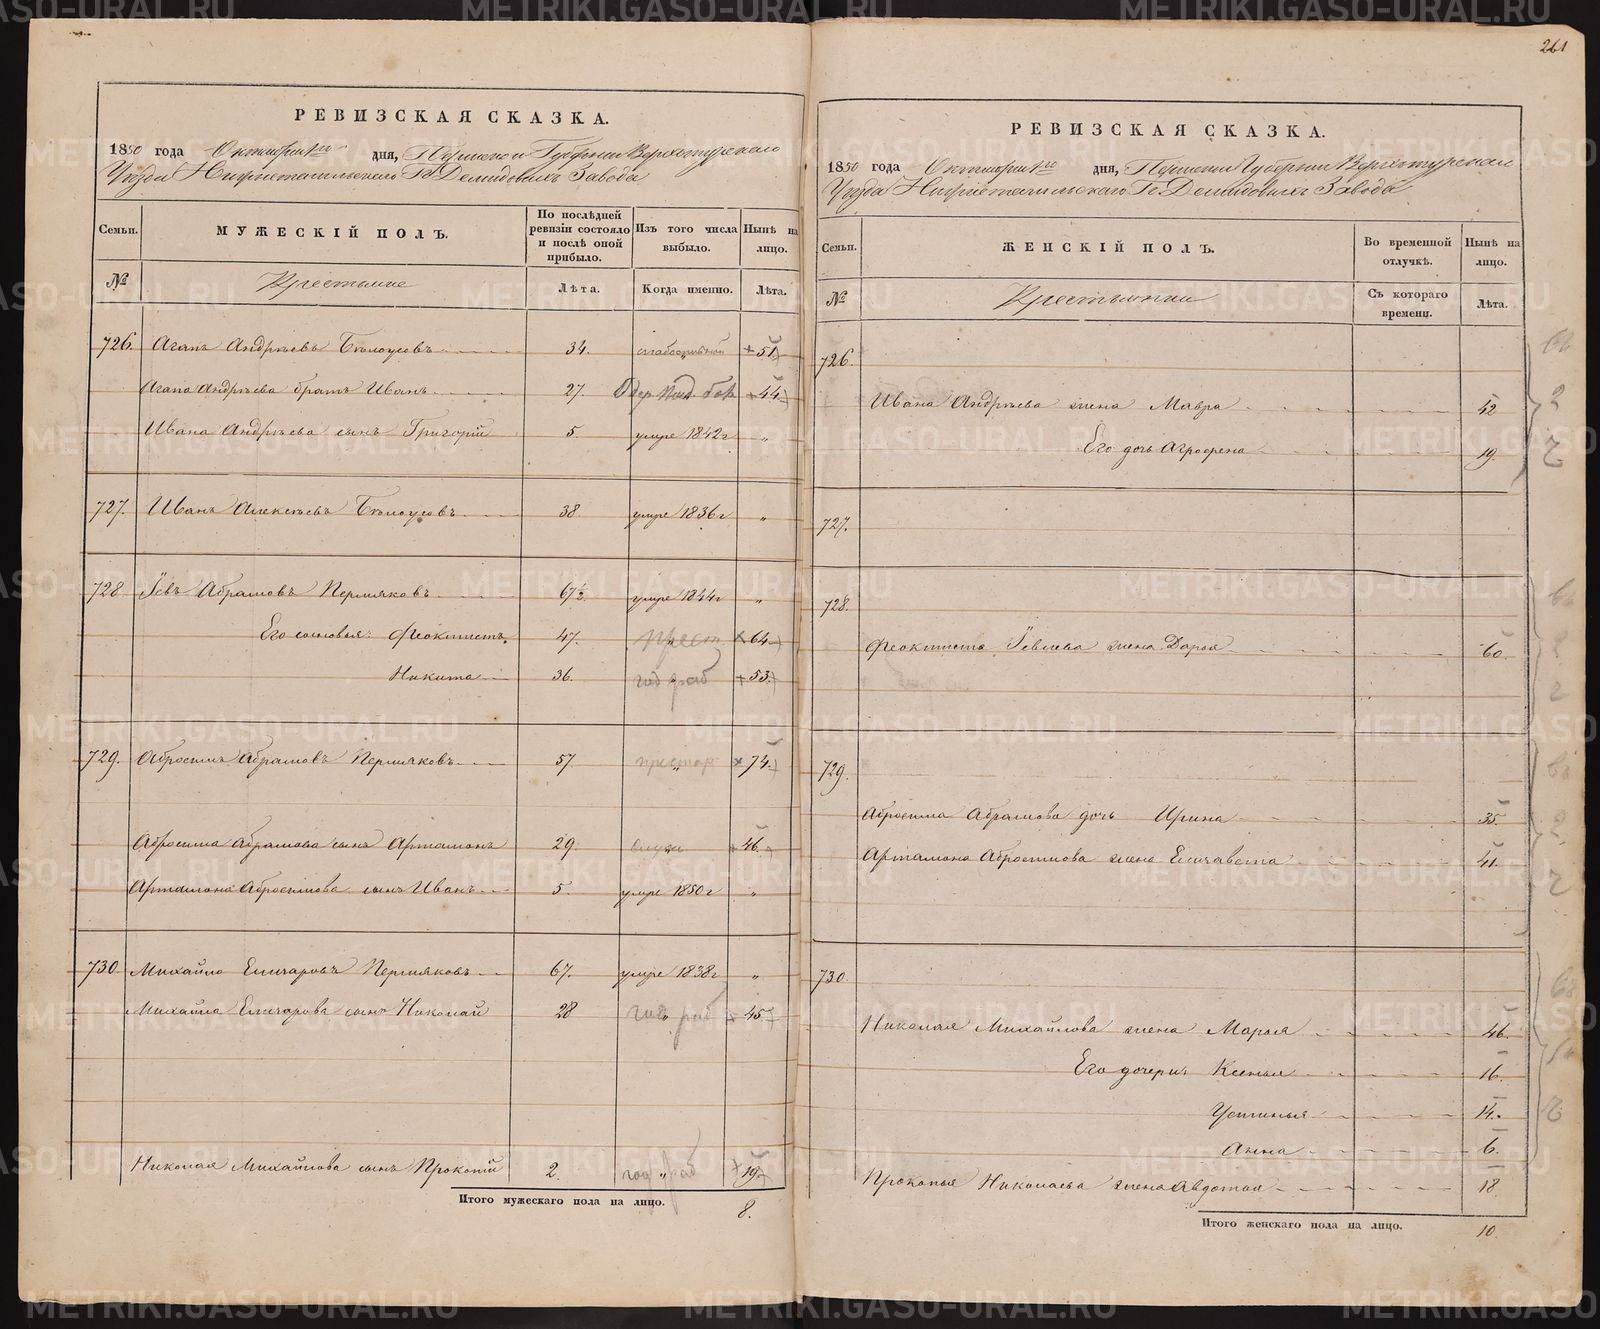 261
РЕВИЗСКАЯ СКАЗКА.
1850 года Октября 1го дня, Пермской Губернии Верхотурскаго
Уезда Нижнетагильскаго Гг Демидовыхъ Завода
Семьи.
МУЖЕСКІЙ ПОЛЪ.
По послѣдней ревизіи состояло и послѣ оной прибыло.
Изъ того числа выбыло.
Нынѣ на лицо.
№
Крестьяне
Лѣта.
Когда именно.
Лѣта.
726. Агапъ Андрѣевъ Бѣлоусовъ 34. 51
Агапа Андрѣева братъ Иванъ 27. 44
Ивана Андрѣева сынъ Григорій 5. умре 1842г "
727. Иванъ Алексѣевъ Бѣлоусовъ 38 умре 1836г "
728 Іевъ Абрамовъ Пермяковъ 67½ умре 1844г "
Его сыновья: Феоктистъ 47. 64
Никита 36. 53
729. Абросимъ Абрамовъ Пермяковъ 57 74
Абросима Абрамова сынъ Артамонъ 29 46
Артамона Абросимова сынъ Иванъ 5. умре 1850г "
730 Михайло Елизаровъ Пермяковъ 67. умре 1838г "
Михайла Елизарова сынъ Николай 28 год раб 45
Николая Михайлова сынъ Прокопій 2. год раб 19
Итого мужескаго пола на лицо. 8.
РЕВИЗСКАЯ СКАЗКА.
1850 года Октября 1го дня, Пермской Губернии Верхотурскаго
Уезда Нижнетагильскаго Гг Демидовыхъ Завода
Семьи.
ЖЕНСКІЙ ПОЛЪ.
Во временной отлучкѣ.
Нынѣ на лицо.
№
Крестьянки
Съ котораго времени.
Лѣта.
726.
Ивана Андрѣева жена Мавра 42
Его дочь Агрофена 19.
727.
728.
Феоктиста Іевлева жена Дарья 60.
729.
Абросима Абрамова дочь Ирина 35
Артамона Абросимова жена Елизавета 41.
730
Николая Михайлова жена Марья 46.
Его дочери: Ксенья 16.
Устинья 14.
Анна 6.
Прокопья Николаева жена Авдотья 18
Итого женскаго пола на лицо. 10.
METRIKI.GASO-URAL.RU